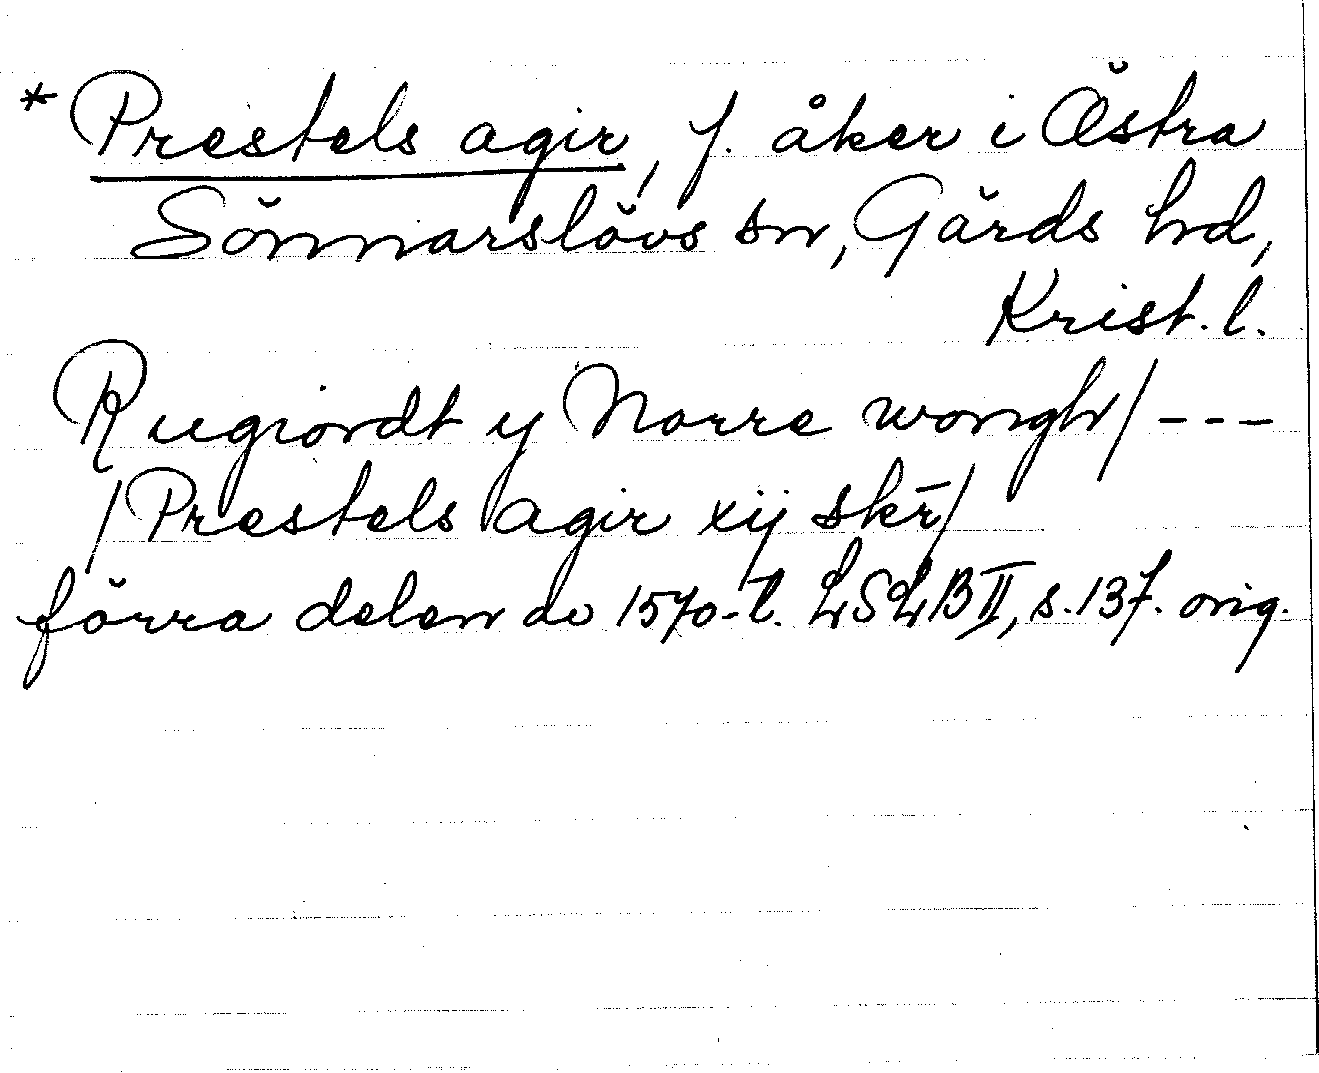 * Prestels agir, f. åker i Östra
Sönnarslövs sn, Gärds hd,
Krist. l.
Rugiordt y Norre wongh/ ---
/Prestels agir xij skr̄/
förra delen av 1570-t. LSLB II, s. 137. orig.